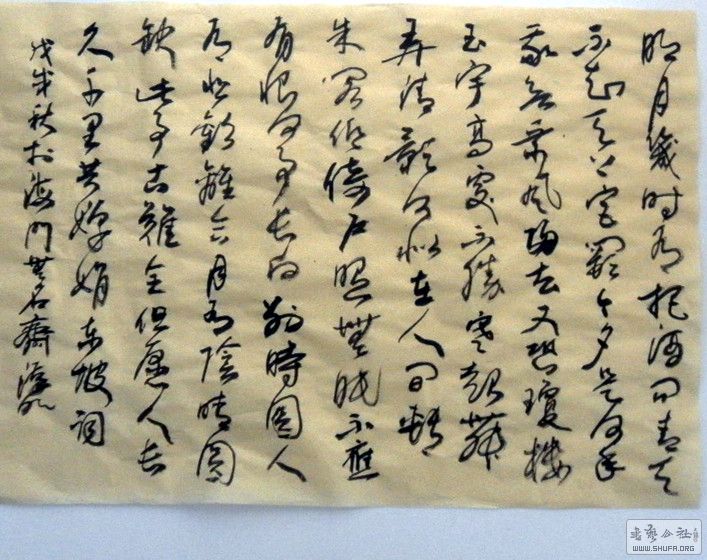 明月幾时有把酒问青天
不知天上宫阙今夕是何年
我欲乘风归去又恐瓊楼
玉宇高处不勝寒起舞
弄清影何似在人间转
朱阁低绮户照無眠不應
有恨何事长向别時圆人
有悲歡離合月有陰晴圆
缺此事古難全但愿人长
久千里共嬋娟东坡词
戊戌秋於海门無名齋
书艺公社
WWW.SHUFA.ORG